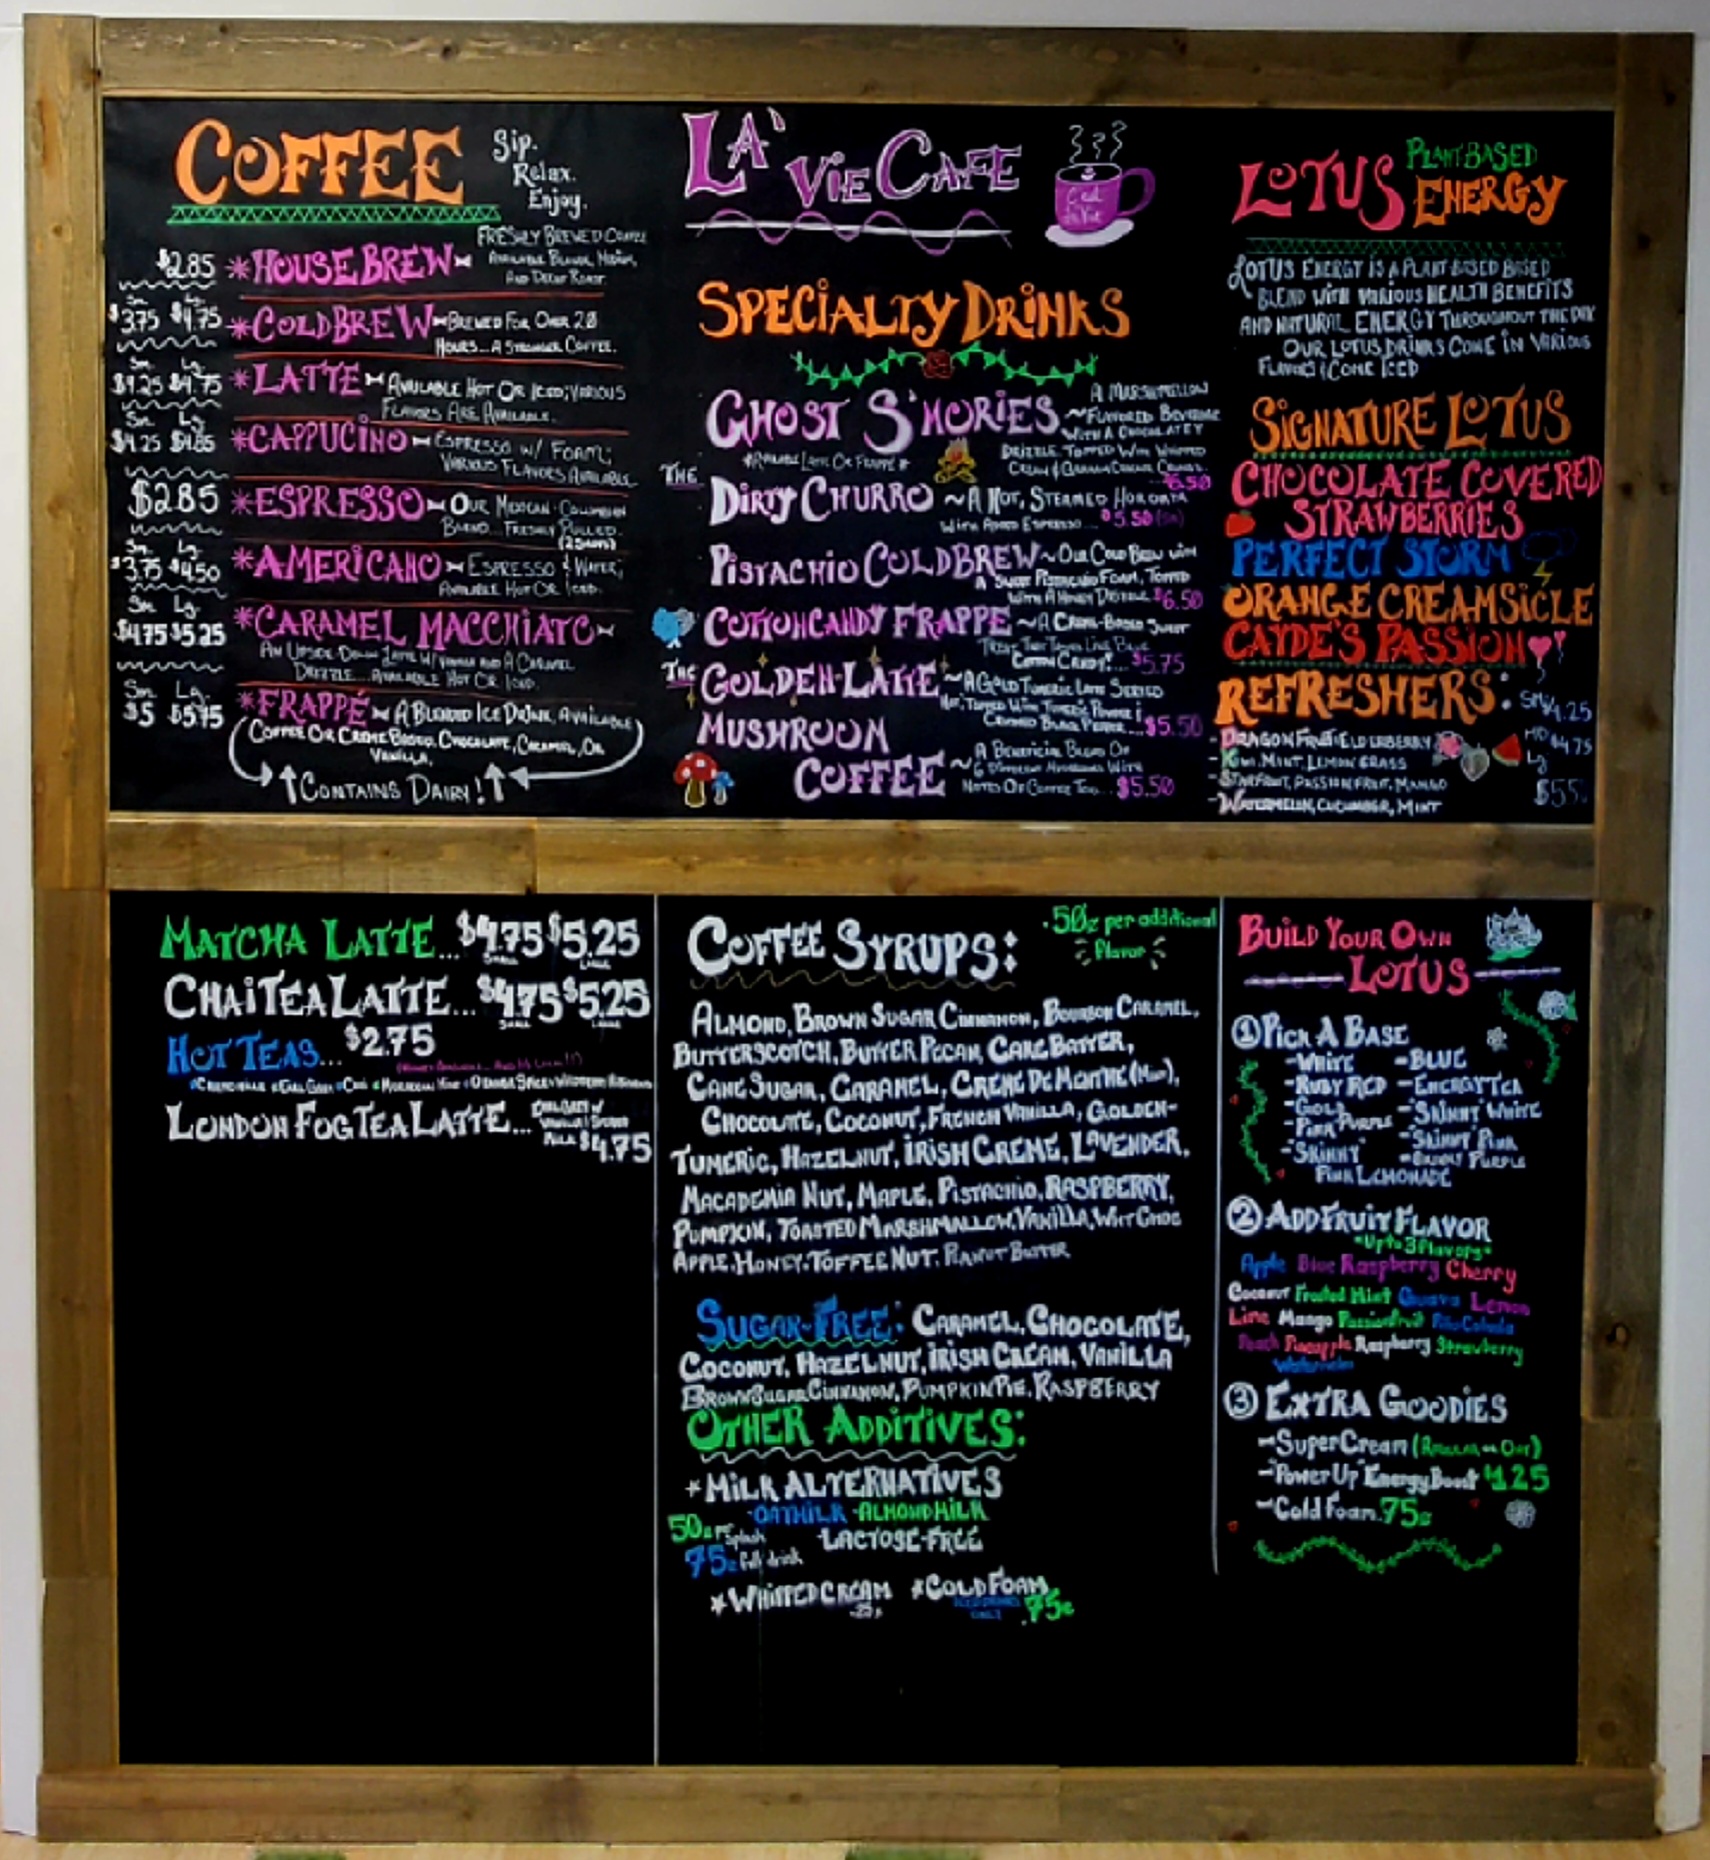 COFFEE
Sip.
Relax.
Enjoy.
$2.85 *HOUSE BREW- FRESHLY BREWED COFFEE
AVAILABLE BLONDE, MEDIUM,
AND DECAF ROAST.
Sm. Lg.
$3.75 $4.75 *COLDBREW-BREWED FOR OVER 20
HOURS...A STRONGER COFFEE.
Sm. Lg.
$4.25 $4.75 *LATTE-AVAILABLE HOT OR ICED; VARIOUS
FLAVORS ARE AVAILABLE.
Sm. Lg.
$4.25 $4.85 *CAPPUCINO-ESPRESSO W/ FOAM;
VARIOUS FLAVORS AVAILABLE.
$2.85 *ESPRESSO-OUR MEXICAN-COLUMBIAN
BLEND...FRESHLY PULLED.
(2 SHOTS)
Sm. Lg.
$3.75 $4.50 *AMERICANO-ESPRESSO & WATER;
AVAILABLE HOT OR ICED.
Sm. Lg.
$4.75 $5.25 *CARAMEL MACCHIATO-
AN UPSIDE-DOWN LATTE W/ VANILLA AND A CARAMEL
DRIZZLE...AVAILABLE HOT OR ICED.
Sm. Lg.
$5 $5.75 *FRAPPÉ-A BLENDED ICE DRINK, AVAILABLE
COFFEE OR CREME BASED, CHOCOLATE, CARAMEL, OR
VANILLA.
CONTAINS DAIRY!
LA' VIE CAFE
C'est
la Vie
SPECIALTY DRINKS
GHOST S'MORIES~ A MARSHMELLOW
FLAVORED BEVERAGE
WITH A CHOCOLATEY
DRIZZLE. TOPPED WITH WHIPPED
CREAM & GRAHAM CRACKER CRUMBS.
*AVAILABLE LATTE OR FRAPPE*
$6.50
THE DIRTY CHURRO ~A HOT, STEAMED HORCHATA
WITH ADDED ESPRESSO...$5.50 (Sm)
PISTACHIO COLDBREW~OUR COLD BREW WITH
A SWEET PISTACHIO FOAM, TOPPED
WITH A HONEY DRIZZLE. $6.50
COTTONCANDY FRAPPE ~A CREME-BASED SWEET
TREAT THAT TASTES LIKE BLUE
COTTON CANDY!...$5.75
THE GOLDEN-LATTE~A GOLD TUMERIC LATTE SERVED
HOT, TOPPED WITH TUMERIC POWDER &
CRUSHED BLACK PEPPER...$5.50
MUSHROOM
COFFEE ~ A BENEFICIAL BLEND OF
6 DIFFERENT MUSHROOMS WITH
NOTES OF COFFEE TOO...$5.50
LOTUS PLANT BASED
ENERGY
LOTUS ENERGY IS A PLANT-BASED BASED
BLEND WITH VARIOUS HEALTH BENEFITS
AND NATURAL ENERGY THROUGHOUT THE DAY.
OUR LOTUS DRINKS COME IN VARIOUS
FLAVORS & COME ICED
SIGNATURE LOTUS
CHOCOLATE COVERED
STRAWBERRIES
PERFECT STORM
ORANGE CREAMSICLE
CAYDE'S PASSION
REFRESHERS: SM $4.25
-DRAGON FRUIT ELDERBERRY MD $4.75
-KIWI, MINT, LEMON GRASS Lg
-STARFRUIT, PASSIONFRUIT, MANGO
-WATERMELON, CUCUMBER, MINT
MATCHA LATTE...$4.75 $5.25
SMALL LARGE
CHAI TEA LATTE...$4.75 $5.25
SMALL LARGE
HOT TEAS... $2.75
LONDON FOG TEA LATTE... EARL GREY W/
VANILLA & STEAMED
MILK $4.75
COFFEE SYRUPS: .50¢ per additional
flavor
ALMOND, BROWN SUGAR CINNAMON, BOURBON CARAMEL,
BUTTERSCOTCH, BUTTER PECAN, CAKE BATTER,
CANE SUGAR, CARAMEL, CREME DE MENTHE (MINT),
CHOCOLATE, COCONUT, FRENCH VANILLA, GOLDEN-
TUMERIC, HAZELNUT, IRISH CREME, LAVENDER,
MACADEMIA NUT, MAPLE, PISTACHIO, RASPBERRY,
PUMPKIN, TOASTED MARSHMALLOW, VANILLA, WHT CHOC
APPLE, HONEY, TOFFEE NUT, PEANUT BUTTER
SUGAR-FREE: CARAMEL, CHOCOLATE,
COCONUT, HAZELNUT, IRISH CREAM, VANILLA
BROWN SUGAR CINNAMON, PUMPKIN PIE, RASPBERRY
OTHER ADDITIVES:
*MILK ALTERNATIVES
-OATMILK -ALMONDMILK
50¢ Splash -LACTOSE-FREE
75¢ full drink
*WHIPPED CREAM *COLD FOAM
.25¢ ICED DRINKS
ONLY .75¢
BUILD YOUR OWN
LOTUS
① PICK A BASE
-WHITE -BLUE
-RUBY RED -ENERGY TEA
-GOLD -"SKINNY" WHITE
-PINK PURPLE -"SKINNY" PINK
-"SKINNY" -SKINNY PURPLE
PINK LEMONADE
② ADD FRUIT FLAVOR
*Up to 3 flavors*
Apple Blue Raspberry Cherry
Coconut Frosted Mint Guava Lemon
Lime Mango Passionfruit Piña Colada
Peach Pineapple Raspberry Strawberry
Watermelon
③ EXTRA GOODIES
-Super Cream (REGULAR OR OAT)
-"Power Up" Energy Boost $1.25
-Cold Foam .75¢